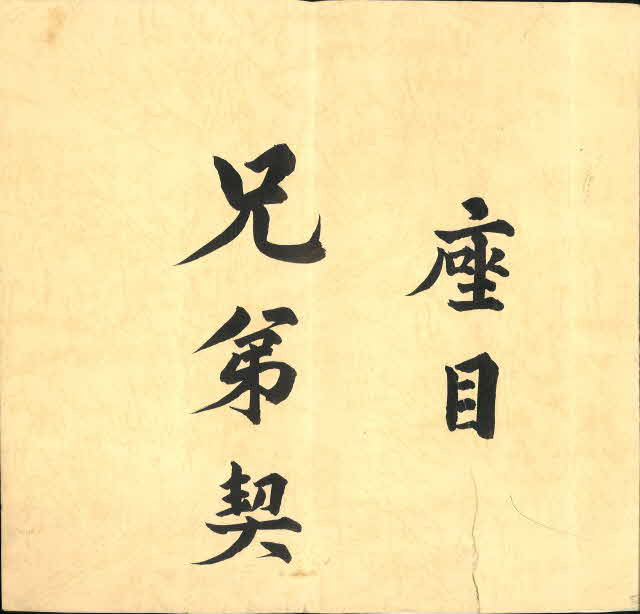 座目
兄弟契